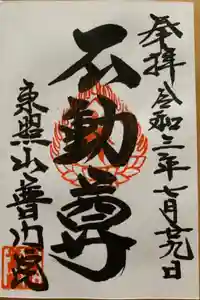 奉拝 令和三年七月廿九日
不動尊
東照山普門院